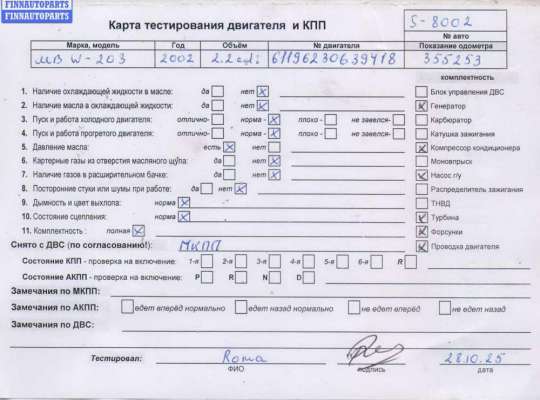 FINNAUTOPARTS
FINNAUTOPARTS
Карта тестирования двигателя и КПП
S-8002
№ авто
Марка, модель Год Объём № двигателя Показание одометра
МВ W-203 2002 2.2 cdi 61196230639418 355253
комплектность
1. Наличие охлаждающей жидкости в масле: да нет x Блок управления ДВС
2. Наличие масла в охлаждающей жидкости: да нет x Генератор
3. Пуск и работа холодного двигателя: отлично- норма - x плохо - не завелся- Карбюратор
4. Пуск и работа прогретого двигателя: отлично- норма - x плохо - не завелся- Катушка зажигания
5. Давление масла: есть x нет Компрессор кондиционера
6. Картерные газы из отверстия масляного щупа: да нет x Моновпрыск
7. Наличие газов в расширительном бачке: да нет x Насос г/у
8. Посторонние стуки или шумы при работе: да нет x Распределитель зажигания
9. Дымность и цвет выхлопа: норма x ТНВД
10. Состояние сцепления: норма x Турбина
11. Комплектность : полная x Форсунки
Снято с ДВС (по согласованию!): МКПП Проводка двигателя
Состояние КПП - проверка на включение: 1-я 2-я 3-я 4-я 5-я 6-я R
Состояние АКПП - проверка на включение: P R N D
Замечания по МКПП:
Замечания по АКПП: едет вперёд нормально едет назад нормально не едет вперёд не едет назад
Замечания по ДВС:
Тестировал: Roma 28.10.25
ФИО подпись дата